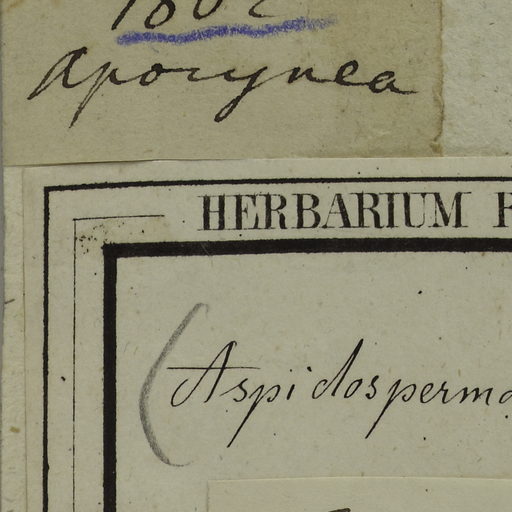 Apocynea
HERBARIUM
(Aspidosperma